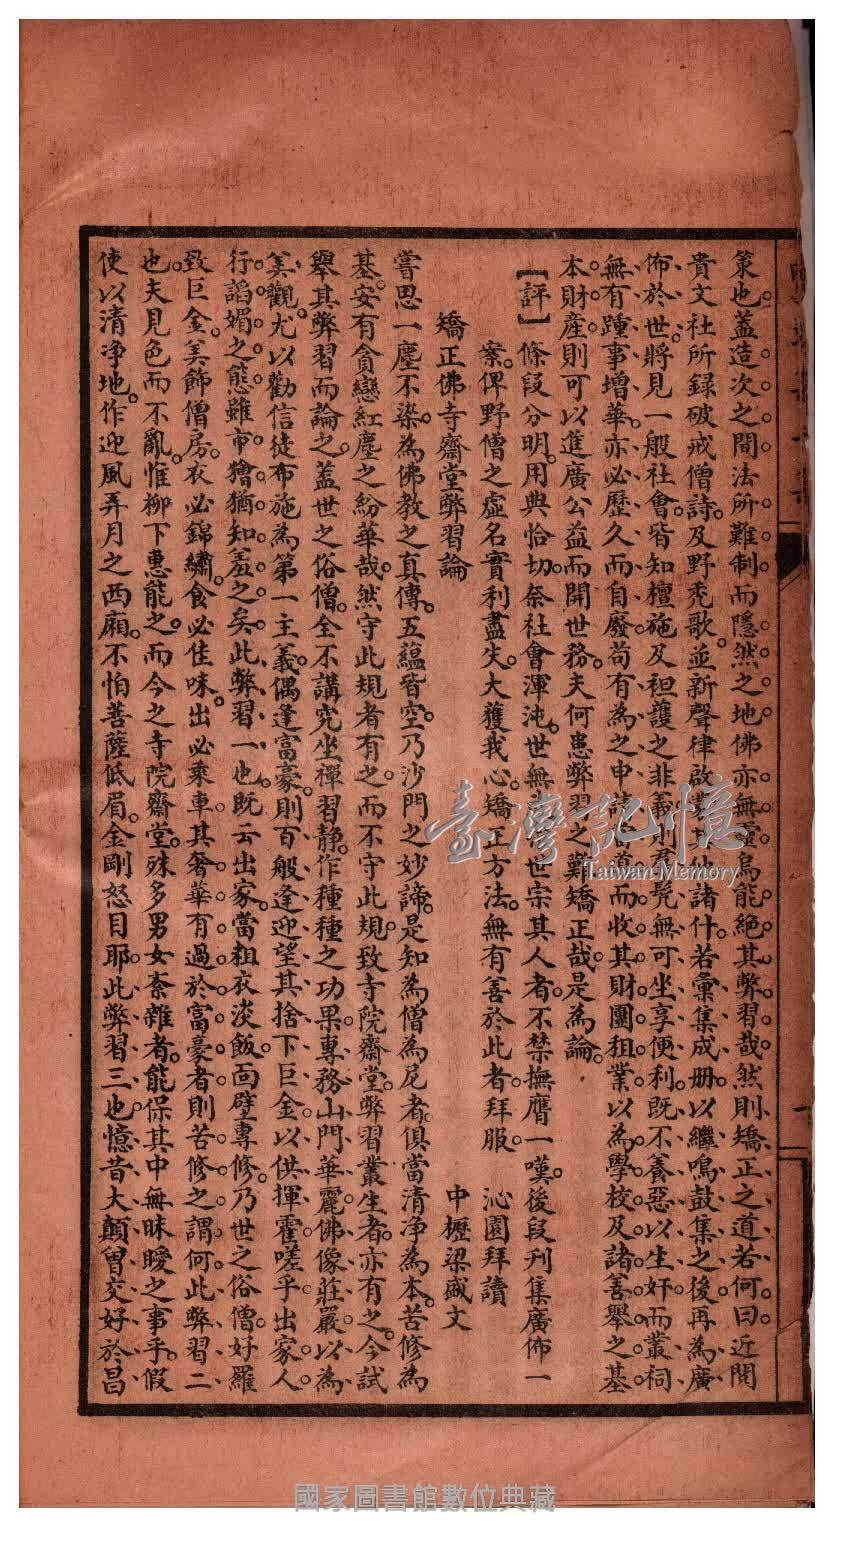 策也。蓋造次之間。法所難制。而隱然之地。佛亦無靈。烏能絕其弊習哉。然則矯正之道若何。曰。近閱
貴文社所録破戒僧詩。及野禿歌。並新聲律啟蒙。其他諸什。若彙集成册。以繼鳴鼓集之後。再為廣
佈於世。將見一般社會。皆知檀施及袒護之非義。則羣髡無可坐享便利。既不養惡以生奸。而叢祠
無有踵事增華。亦必歷久而自廢。苟有為之申請當道。而收其財團租業。以為學校及諸善舉之基
本財產。則可以進廣公益。而開世務。夫何患弊習之難矯正哉。是為論。
【評】條段分明。用典恰切。奈社會渾沌。世無 世宗其人者。不禁撫膺一嘆。後段刊集廣佈一
案。俾野僧之虛名實利盡失。大獲我心。矯正方法。無有善於此者。拜服。 沁園拜讀
矯正佛寺齋堂弊習論 中壢梁盛文
嘗思一塵不染。為佛教之真傳。五蘊皆空。乃沙門之妙諦。是知為僧為尼者。俱當清净為本。苦修為
基。安有貪戀紅塵之紛華哉。然守此規者有之。而不守此規。致寺院齋堂。弊習叢生者。亦有之。今試
舉其弊習而論之。蓋世之俗僧。全不講究坐禪習静。作種種之功果。專務山門華麗。佛像莊嚴。以為
美觀。尤以勸信徒布施為第一主義。偶逢富豪。則百般逢迎。望其捨下巨金。以供揮霍。嗟乎。出家人
行諂媚之態。雖市獪猶知羞之矣。此弊習一也。既云出家。當粗衣淡飯。面壁專修。乃世之俗僧。好羅
致巨金。美飾僧房。衣必錦繡。食必佳味。出必乘車。其奢華有過於富豪者。則苦修之謂何。此弊習二
也。夫見色而不亂。惟柳下惠能之。而今之寺院齋堂。殊多男女紊雜者。能保其中無昧曖之事乎。假
使以清净地。作迎風弄月之西廂。不怕菩薩低眉。金剛怒目耶。此弊習三也。憶昔大顛曾交好於昌
臺灣記憶
Taiwan Memory
國家圖書館數位典藏